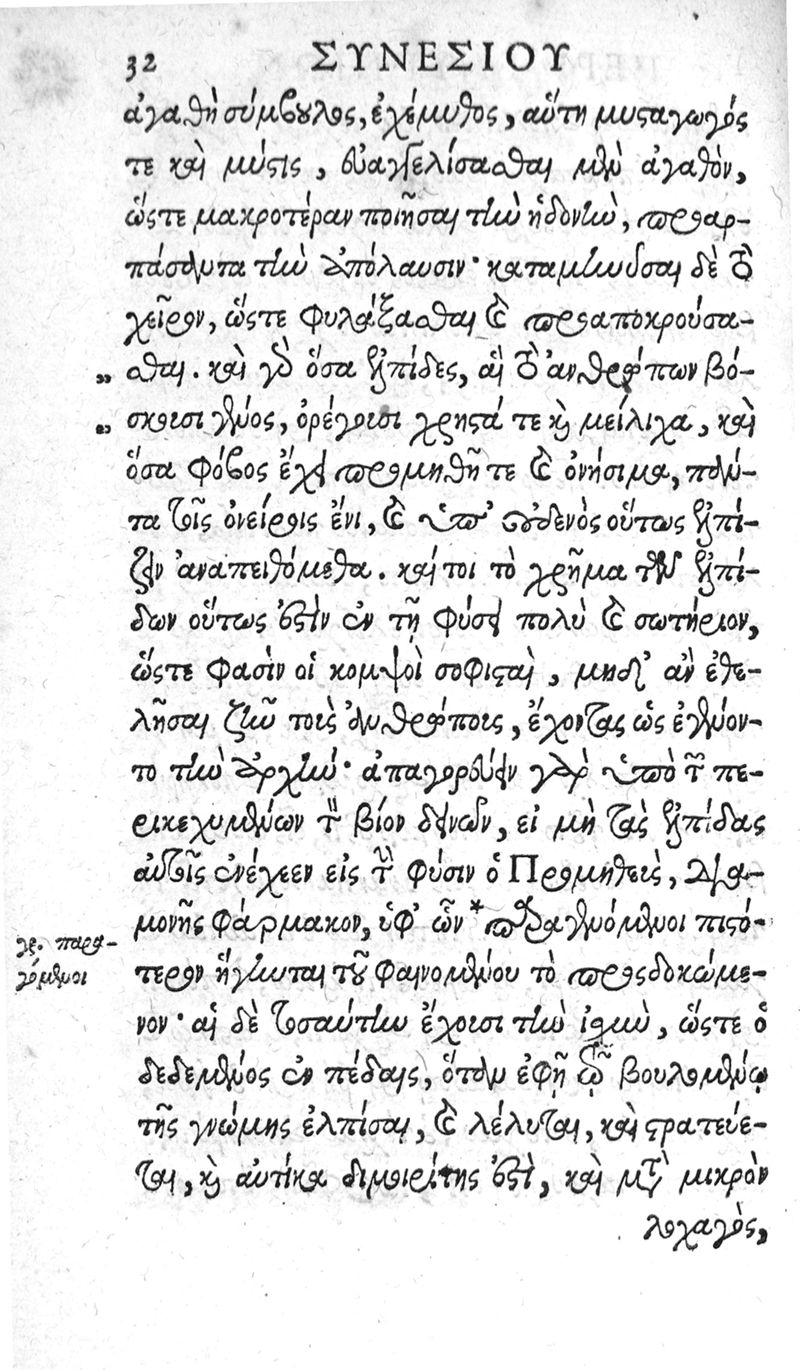 32 ΣΥΝΕΣΙΟΥ
ἀγαθὴ σύμβουλος, ἐχέμυθος, αὕτη μυσταγωγός
τε καὶ μύστις, εὐαγγελίσασθαι μὲν ἀγαθὸν,
ὥστε μακροτέραν ποιῆσαι τὴν ἡδονὴν, προαρ-
πάσαντα τὴν ἀπόλαυσιν· καταμηνύσαι δὲ τὸ
χεῖρον, ὥστε φυλάξασθαι καὶ προαποκρούσα-
„ σθαι. καὶ γὰρ ὅσα ἐλπίδες, αἳ τὸ ἀνθρώπων βό-
„ σκουσι γένος, ὀρέγουσι χρηστά τε καὶ μείλιχα, καὶ
ὅσα φόβος ἔχει προμηθῆ τε καὶ ὀνήσιμα, πάν-
τα τοῖς ὀνείροις ἔνι, καὶ ὑπ' οὐδενὸς οὕτως ἐλπί-
ζειν ἀναπειθόμεθα. καίτοι τὸ χρῆμα τῶν ἐλπί-
δων οὕτως ἐστὶν ἐν τῇ φύσει πολὺ καὶ σωτήριον,
ὥστε φασὶν οἱ κομψοὶ σοφισταὶ, μηδ' ἂν ἐθε-
λῆσαι ζῆν τοὺς ἀνθρώπους, ἔχοντας ὡς ἐγένον-
το τὴν ἀρχήν· ἀπαγορεύειν γὰρ ὑπὸ τῶν πε-
ρικεχυμένων τὸν βίον δεινῶν, εἰ μὴ τὰς ἐλπίδας
αὐτοῖς ἐνέχεεν εἰς τὴν φύσιν ὁ Προμηθεὺς, δια-
μονῆς φάρμακον, ὑφ' ὧν * παραγενόμενοι πιστό-
γρ. παρα-
γόμενοι
τερον ἥγηνται τοῦ φαινομένου τὸ προσδοκώμε-
νον· αἱ δὲ τοσαύτην ἔχουσι τὴν ἰσχὺν, ὥστε ὁ
δεδεμένος ἐν πέδαις, ὅταν ἐφῇ τῷ βουλομένῳ
τῆς γνώμης ἐλπίσαι, καὶ λέλυται, καὶ στρατεύε-
ται, καὶ αὐτίκα διμοιρίτης ἐστὶ, καὶ μετὰ μικρὸν
λοχαγὸς,